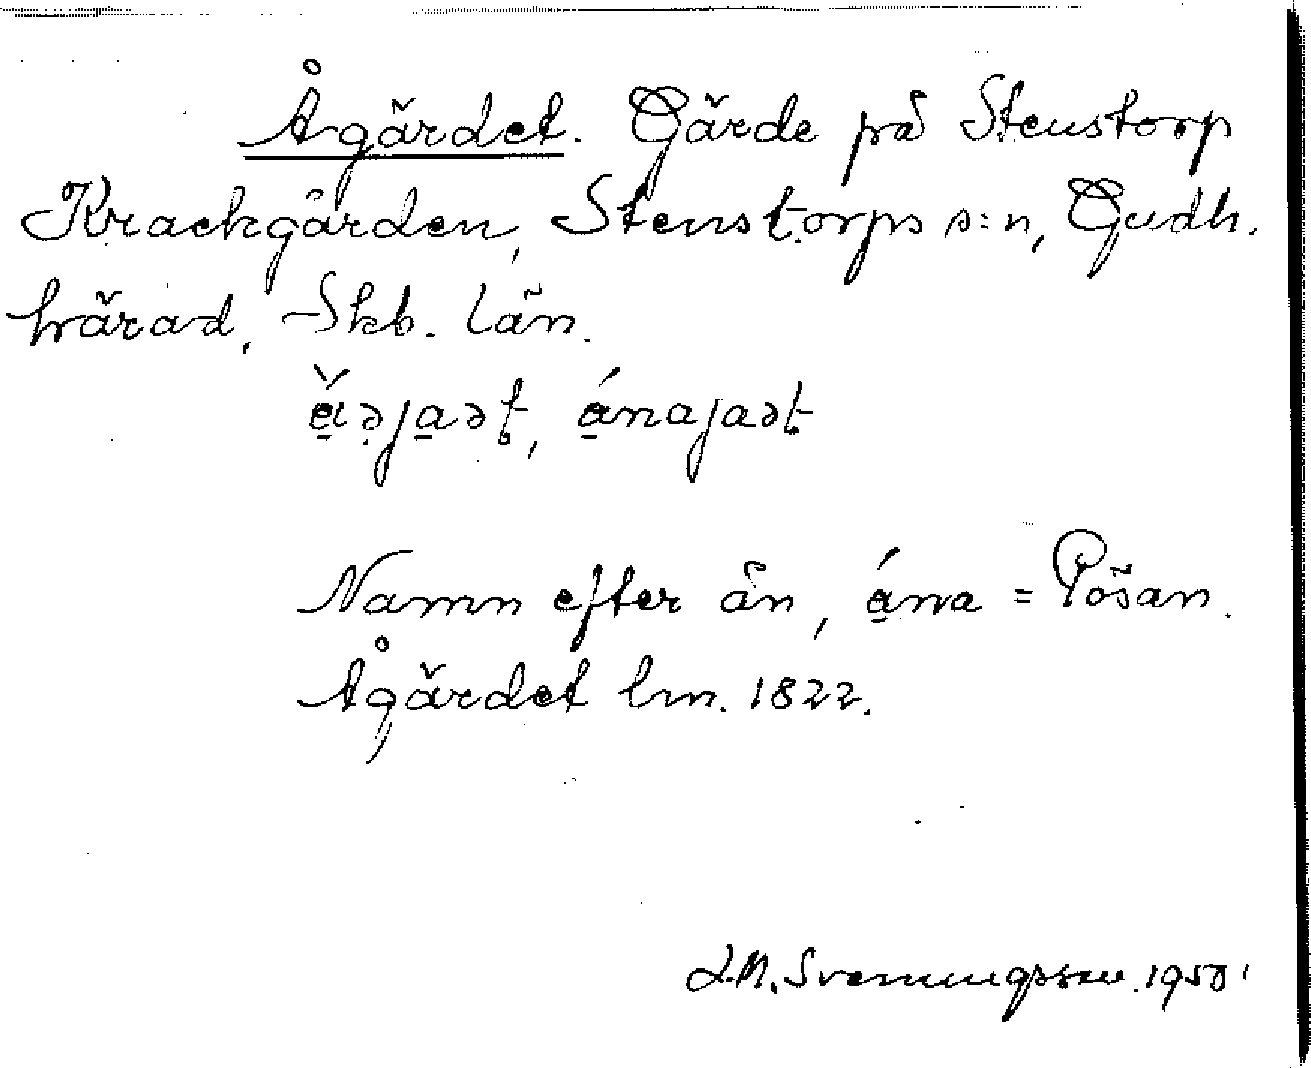 Ågärdet. Gärde på Stenstorp
Krackgården, Stenstorps s:n, Gudh.
härad, Skb. län.
Namn efter ån, ána = Pösan.
Ågärdet lm. 1822.
J.M. Svenungsson. 1950